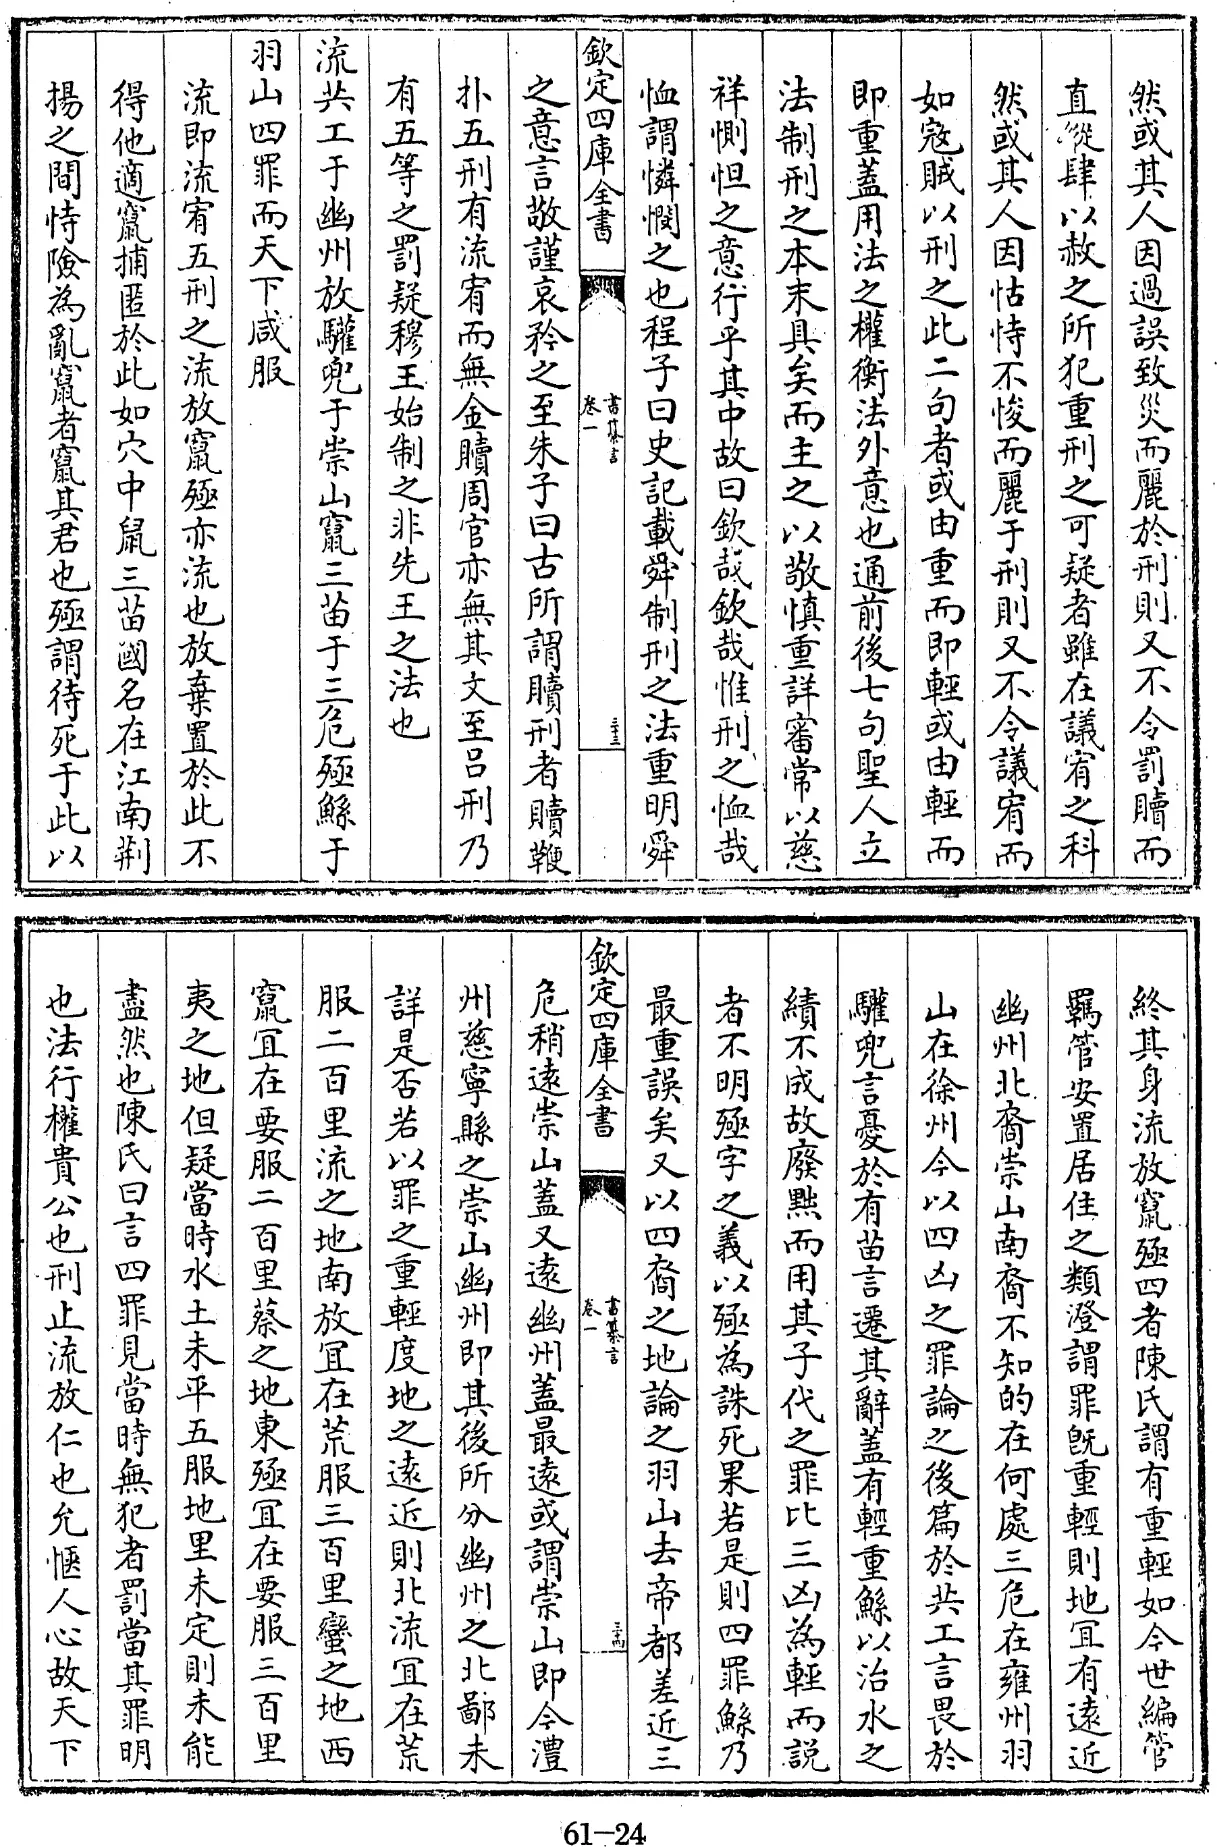 然或其人因過誤致災而麗於刑則又不令罰贖而
直縱肆以赦之所犯重刑之可疑者雖在議宥之科
然或其人因怙恃不悛而麗于刑則又不令議宥而
如寇賊以刑之此二句者或由重而即輕或由輕而
即重蓋用法之權衡法外意也通前後七句聖人立
法制刑之本末具矣而主之以敬慎重詳審常以慈
祥惻怛之意行乎其中故曰欽哉欽哉惟刑之恤哉
恤謂憐憫之也程子曰史記載舜制刑之法重明舜
欽定四庫全書
書纂言
卷一
三十三
之意言敬謹哀矜之至朱子曰古所謂贖刑者贖鞭
扑五刑有流宥而無金贖周官亦無其文至呂刑乃
有五等之罰疑穆王始制之非先王之法也
流共工于幽州放驩兜于崇山竄三苗于三危殛鯀于
羽山四罪而天下咸服
流即流宥五刑之流放竄殛亦流也放棄置於此不
得他適竄捕匿於此如穴中鼠三苗國名在江南荆
揚之間恃險為亂竄者竄其君也殛謂待死于此以
終其身流放竄殛四者陳氏謂有重輕如今世編管
羈管安置居住之類澄謂罪既重輕則地宜有遠近
幽州北裔崇山南裔不知的在何處三危在雍州羽
山在徐州今以四凶之罪論之後篇於共工言畏於
驩兜言憂於有苗言遷其辭蓋有輕重鯀以治水之
績不成故廢黜而用其子代之罪比三凶為輕而說
者不明殛字之義以殛為誅死果若是則四罪鯀乃
最重誤矣又以四裔之地論之羽山去帝都差近三
欽定四庫全書
書纂言
卷一
三十四
危稍遠崇山蓋又遠幽州蓋最遠或謂崇山即今澧
州慈寧縣之崇山幽州即其後所分幽州之北鄙未
詳是否若以罪之重輕度地之遠近則北流宜在荒
服二百里流之地南放宜在荒服三百里蠻之地西
竄宜在要服二百里蔡之地東殛宜在要服三百里
夷之地但疑當時水土未平五服地里未定則未能
盡然也陳氏曰言四罪見當時無犯者罰當其罪明
也法行權貴公也刑止流放仁也允愜人心故天下
61-24